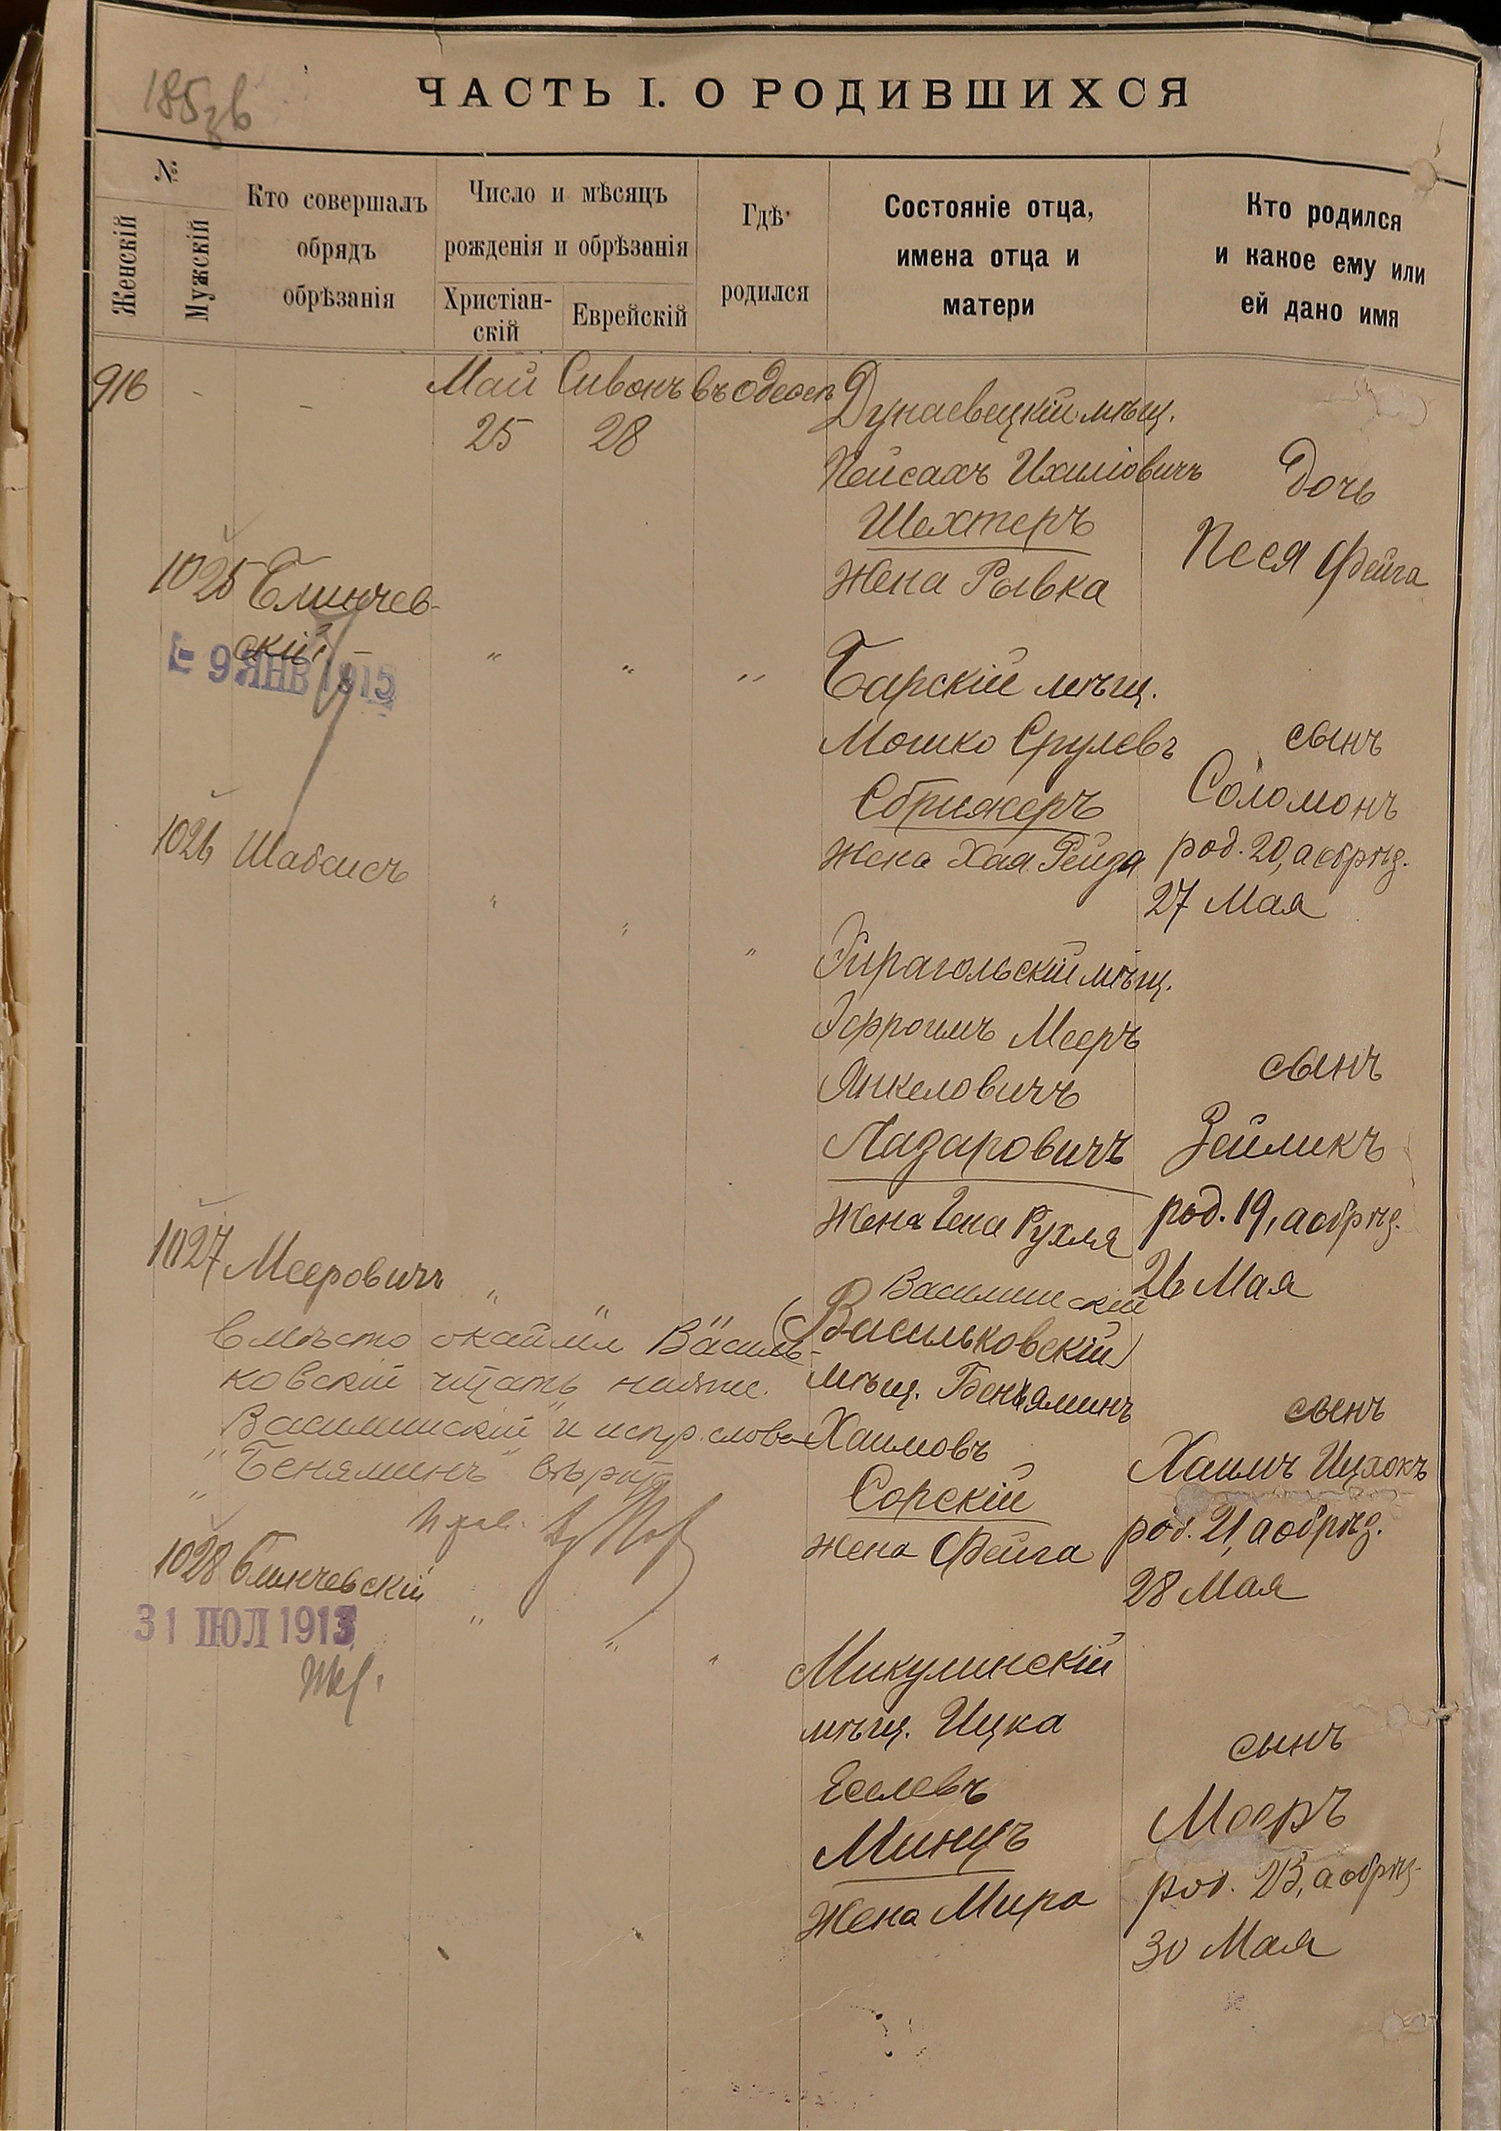 185
ЧАСТЬ I. О РОДИВШИХСЯ
№
Женскій
Мужскій
Кто совершалъ
обрядъ
обрѣзанія
Число и мѣсяцъ
рожденія и обрѣзанія
Христіан-
скій
Еврейскій
Гдѣ
родился
Состояніе отца,
имена отца и
матери
Кто родился
и какое ему или
ей дано имя
916 - - Май Сивонъ въ Одессѣ
25 28
Дунаевецкій мѣщ.
Пейсахъ Ихиліовичъ
Шехтеръ
Жена Рывка
Дочь
Песя Фейга
1025 Блинчев-
скій
- 9 ЯНВ 1915
" " "
Барскій мѣщ.
Мошко Срулевъ
Сбрижеръ
Жена Хая Рейзя
сынъ
Соломонъ
род. 20, а обрѣз.
27 Мая
1026 Шабсисъ
" " "
Гирагольскій мѣщ.
Эфроимъ Мееръ
Янкеловичъ
Лазаровичъ
Жена Гена Рухля
сынъ
Зейликъ
род. 19, а обрѣз.
26 Мая
1027 Мееровичъ " " "
Василишскій
(Васильковскій)
мѣщ. Беньяминъ
Хаимовъ
Сорскій
Жена Фейга
сынъ
Хаимъ Ицхокъ
род. 21, а обрѣз.
28 Мая
вмѣсто Василь-
ковскій читать
"Василишскій" и испр. слово
"Беняминъ" вѣрить
1028 Блинчевскій
31 ІЮЛ 1913
" " "
Микулинскій
мѣщ. Ицка
Еселевъ
Минцъ
Жена Мира
сынъ
Мееръ
род. 23, а обрѣз.
30 Мая